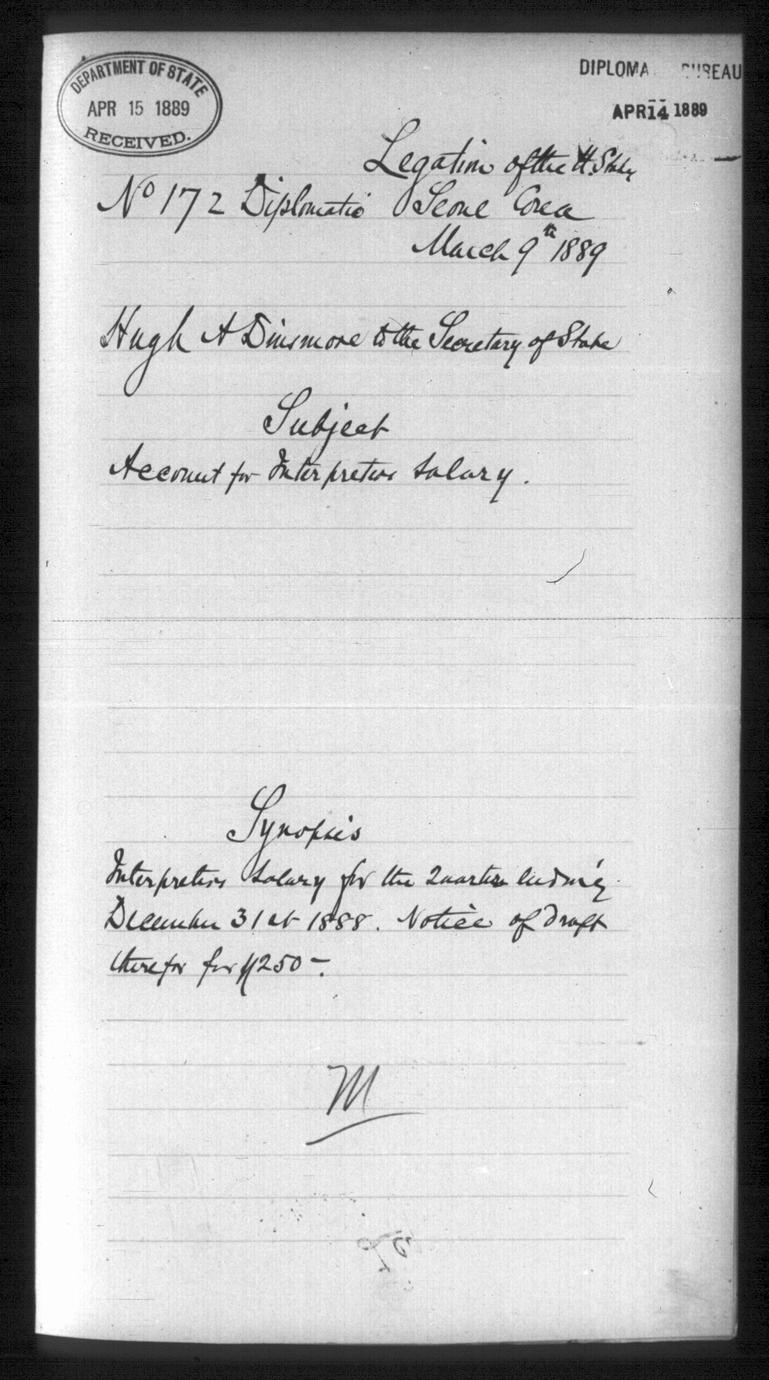 DEPARTMENT OF STATE
APR 15 1889
RECEIVED.
DIPLOMA BUREAU
APR 14 1889
Legation of the U. States
No 172 Diplomatic Seoul Corea
March 9th 1889
Hugh A Dinsmore to the Secretary of State
Subject
Account for Interpreters Salary.
Synopsis
Interpreters Salary for the Quarter ending
December 31st 1888. Notice of Draft
therefor for $250-.
M